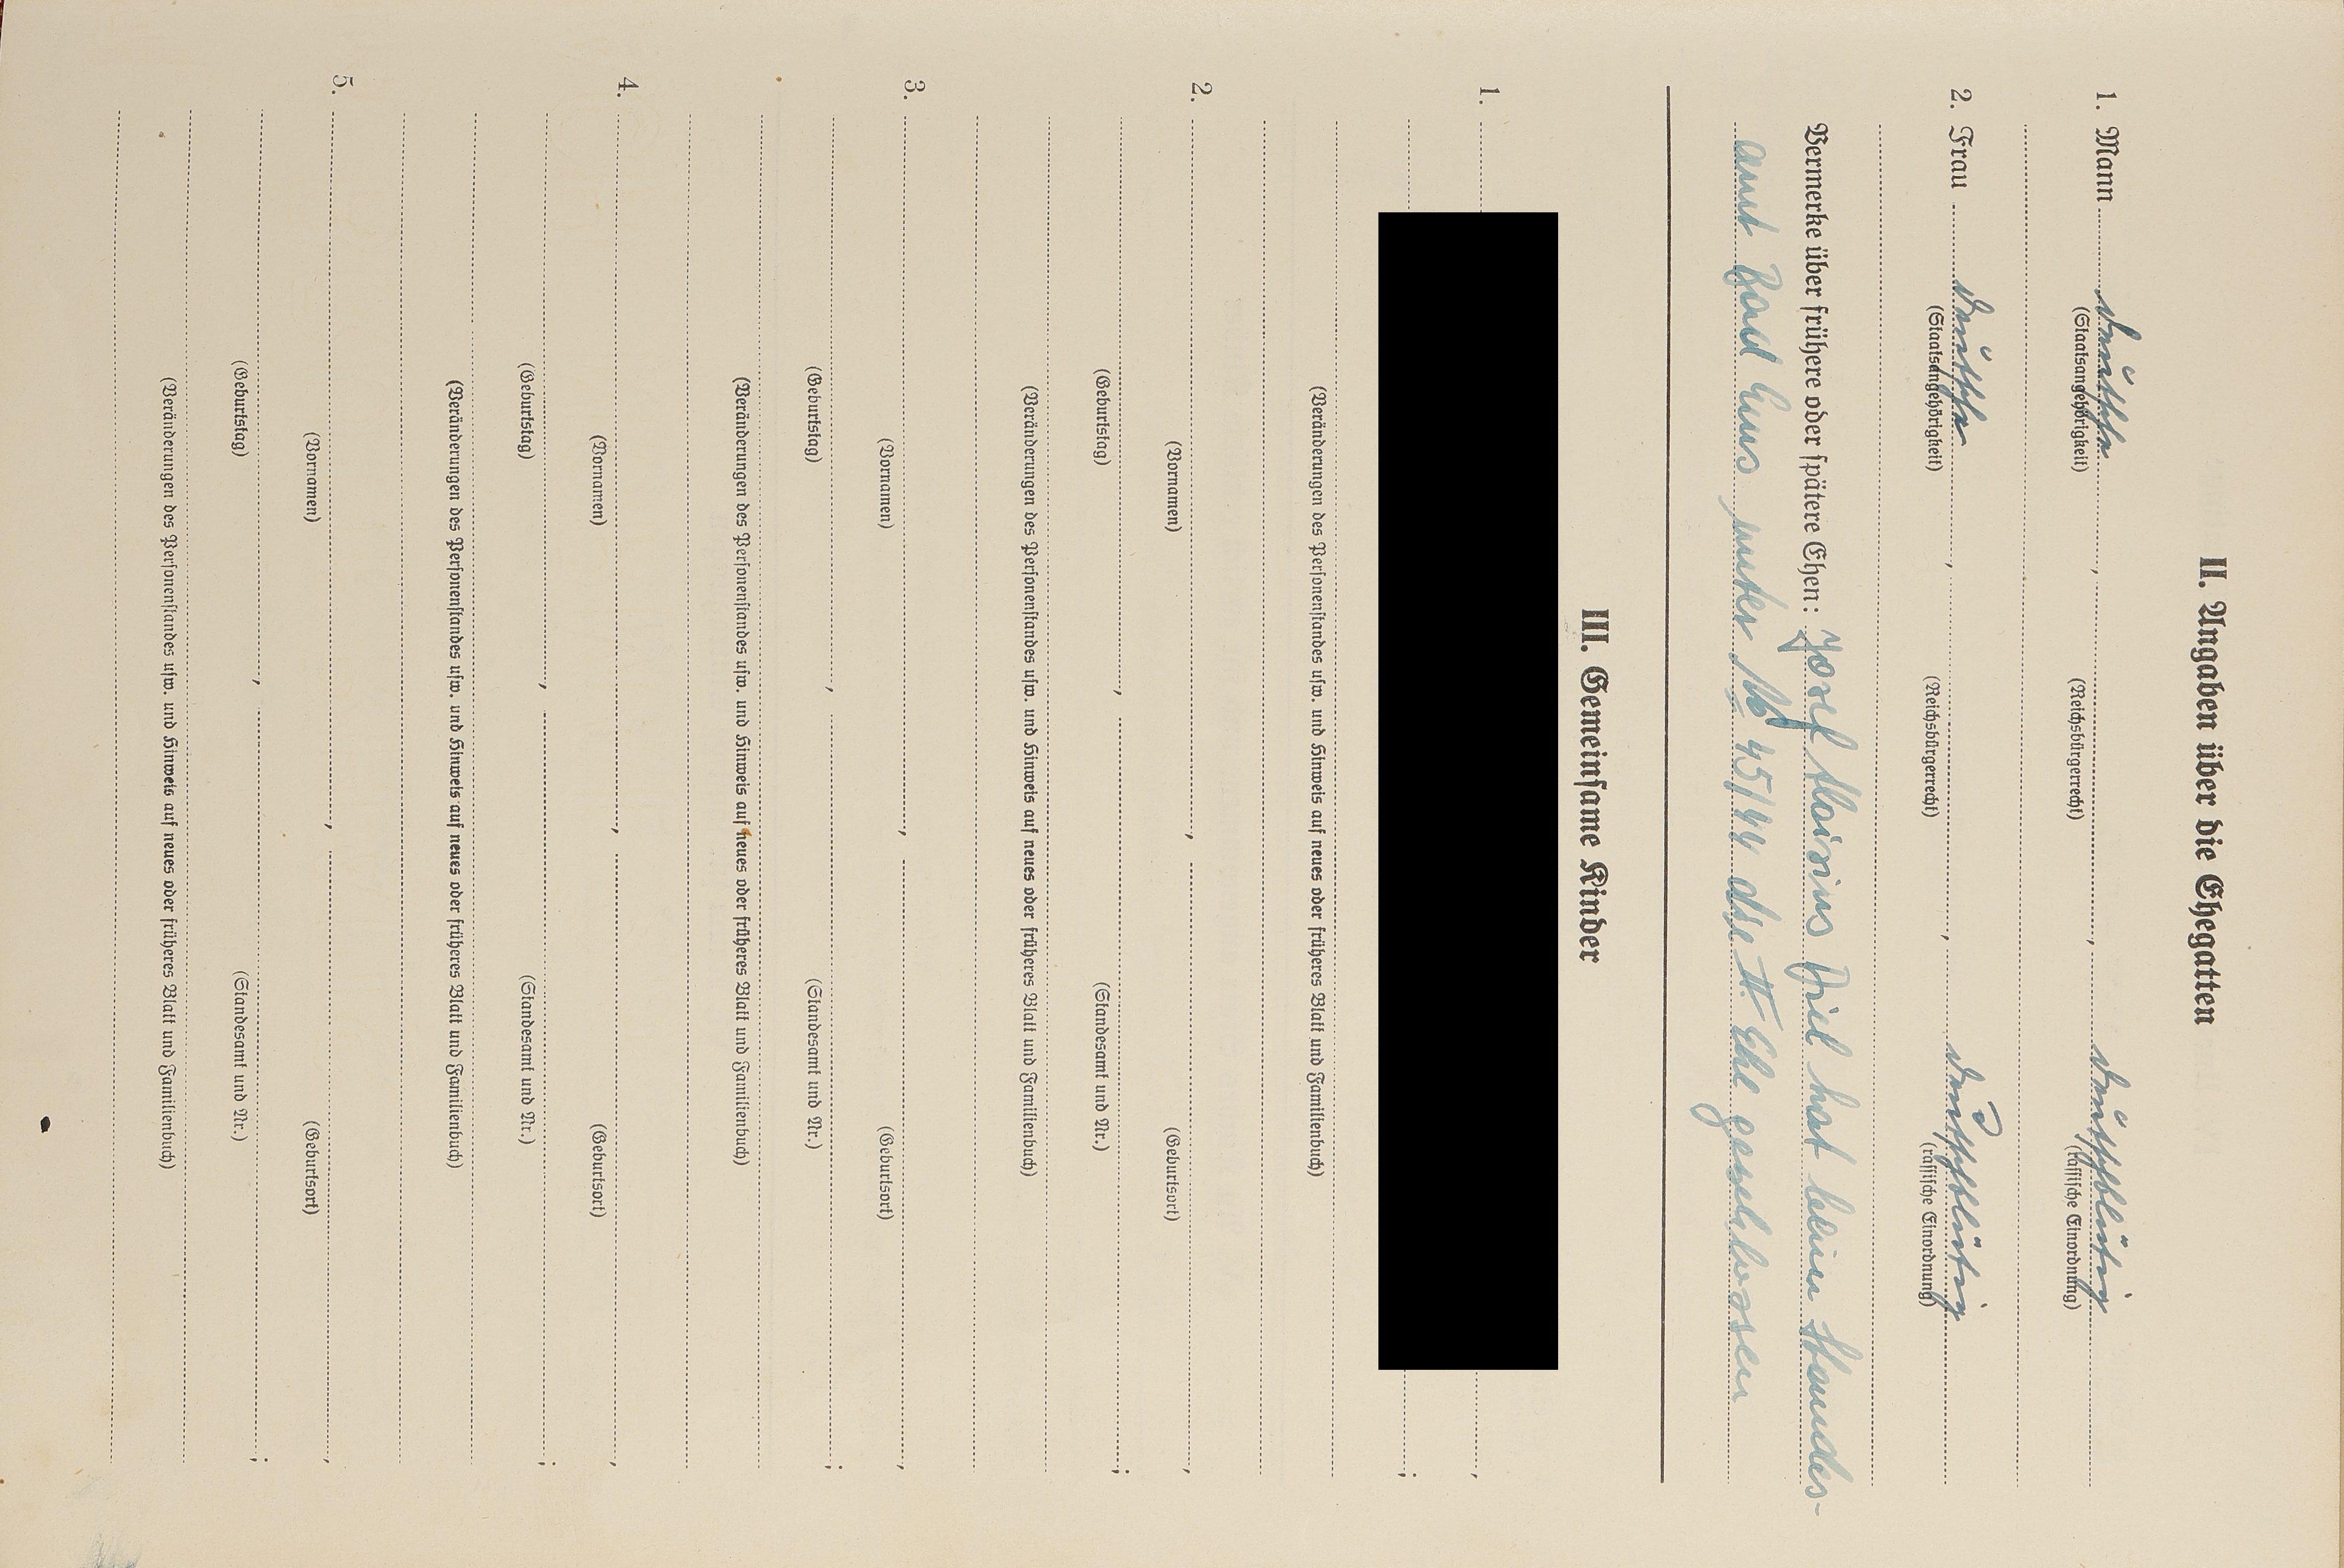 II. Angaben über die Ehegatten
1. Mann deutsche , ,  deutschblütig
(Staatsangehörigkeit) (Reichsbürgerrecht) (rassische Einordnung)
2. Frau deutsche , , deutschblütig
(Staatsangehörigkeit) (Reichsbürgerrecht) (rassische Einordnung)
Vermerke über frühere oder spätere Ehen: Josef Aloisius Friel hat beim Standes-
amt Bad Ems unter No 45/44 die II. Ehe geschlossen
III. Gemeinsame Kinder
1. ,
;
(Veränderungen des Personenstandes usw. und Hinweis auf neues oder früheres Blatt und Familienbuch)
2. , ,
(Vornamen) (Geburtsort)
, ;
(Geburtstag) (Standesamt und Nr.)
(Veränderungen des Personenstandes usw. und Hinweis auf neues oder früheres Blatt und Familienbuch)
3. , ,
(Vornamen) (Geburtsort)
, ;
(Geburtstag) (Standesamt und Nr.)
(Veränderungen des Personenstandes usw. und Hinweis auf neues oder früheres Blatt und Familienbuch)
4. , ,
(Vornamen) (Geburtsort)
, ;
(Geburtstag) (Standesamt und Nr.)
(Veränderungen des Personenstandes usw. und Hinweis auf neues oder früheres Blatt und Familienbuch)
5. , ,
(Vornamen) (Geburtsort)
, ;
(Geburtstag) (Standesamt und Nr.)
(Veränderungen des Personenstandes usw. und Hinweis auf neues oder früheres Blatt und Familienbuch)